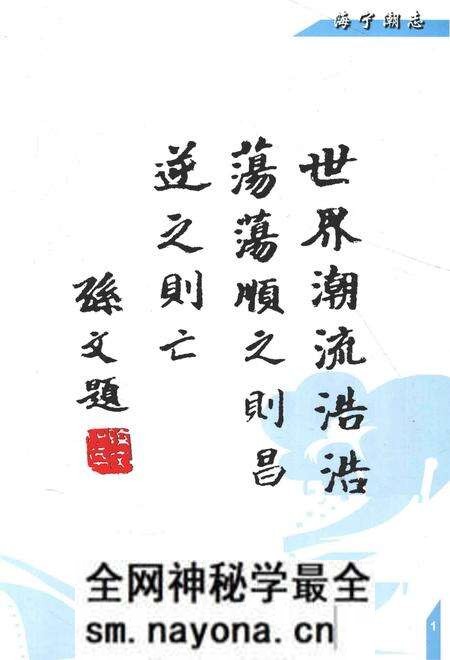 海宁潮志
世界潮流浩浩
蕩蕩順之則昌
逆之則亡
孫文題
全网神秘学最全
sm.nayona.cn
1